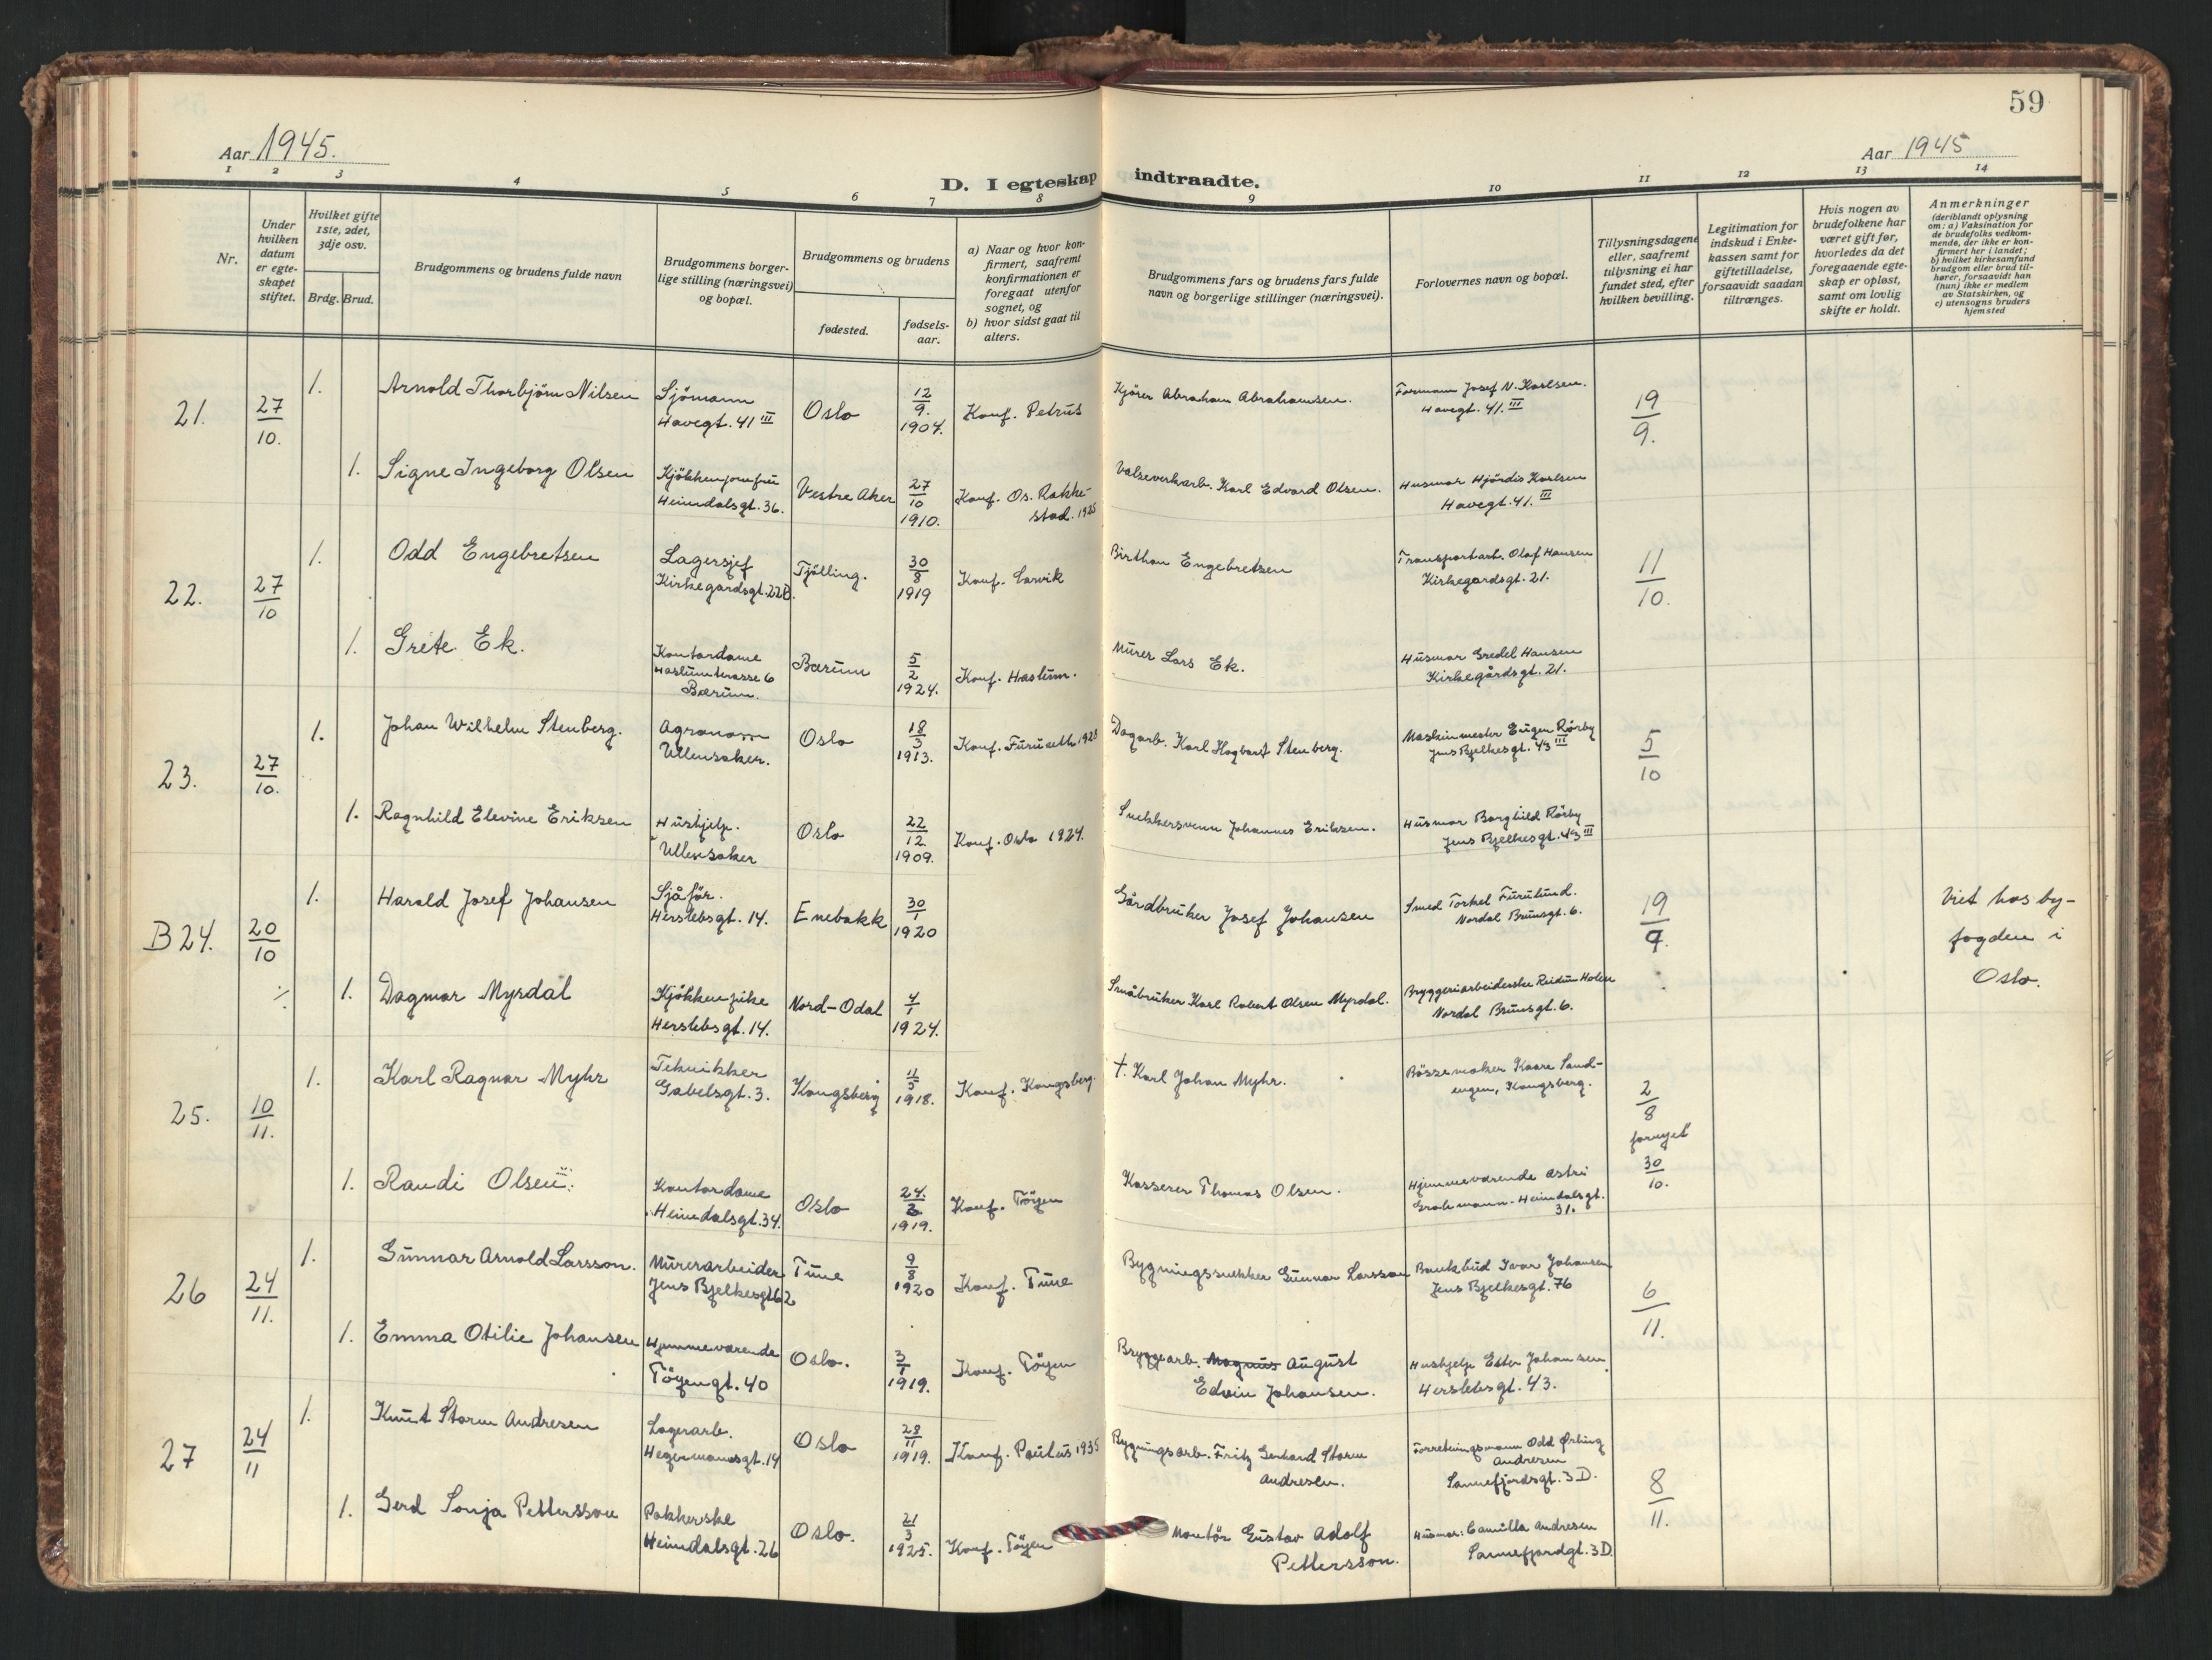 59
Aar 1945.
Aar 1945
D. I egteskap indtraadte.
1 2 3 4 5 6 7 8 9 10 11 12 13 14
Nr.
Under hvilken datum er egteskapet stiftet.
Hvilket gifte 1ste, 2det, 3dje osv.
Brdg. Brud.
Brudgommens og brudens fulde navn
Brudgommens borgerlige stilling (næringsvei) og bopæl.
Brudgommens og brudens
fødested.
fødselsaar.
a) Naar og hvor konfirmert, saafremt konfirmationen er foregaat utenfor sognet, og
b) hvor sidst gaat til alters.
Brudgommens fars og brudens fars fulde navn og borgerlige stillinger (næringsvei).
Forlovernes navn og bopæl.
Tillysningsdagene eller, saafremt tillysning ei har fundet sted, efter hvilken bevilling.
Legitimation for indskud i Enkekassen samt for giftetilladelse, forsaavidt saadan tiltrænges.
Hvis nogen av brudefolkene har været gift før, hvorledes da det foregaaende egteskap er opløst, samt om lovlig skifte er holdt.
Anmerkninger
(deriblandt oplysning om: a) Vaksination for de brudefolks vedkommende, der ikke er konfirmert her i landet; b) hvilket kirkesamfund brudgom eller brud tilhører, forsaavidt han (hun) ikke er medlem av Statskirken, og c) utensogns bruders hjemsted
21. 27/10. 1. Arnold Thorbjörn Nilsen Sjömann Havegt. 41 III Oslo 12/9. 1904. Konf. Petrus Kjörer Abraham Abrahamsen. Formann Josef N. Karlsen. Havegt. 41. III 19/9.
1. Signe Ingeborg Olsen Kjökkenjomfru Heimdalsgt. 36. Vestre Aker 27/10 1910. Konf. Os. Rakkestad. 1925 Valseverkarb. Karl Edvard Olsen. Husmor Hjördis Karlsen Havegt. 41. III
22. 27/10 1. Odd Engebretsen Lagersjef Kirkegardsgt. 22B. Tjölling. 30/8 1919 Konf. Larvik Birthon Engebretsen Transportarb. Olaf Hansen Kirkegardsgt. 21. 11/10.
1. Grete Ek. Kontordame Haslumterasse 6 Bærum. Bærum 5/2 1924. Konf. Haslum. Murer Lars Ek. Husmor Gredel Hansen Kirkegårdsgt. 21.
23. 27/10. 1. Johan Wilhelm Stenberg. Agronom Ullensaker. Oslo 18/3 1913. Konf. Furuseth 1928 Dagarb. Karl Hagbart Stenberg. Maskinmester Eugen Rörby Jens Bjelkesgt. 43 III 5/10
1. Ragnhild Elevine Eriksen Hushjelp. Ullensaker Oslo 22/12 1909. Konf. Oslo 1924. Snekkersvenn Johannes Eriksen. Husmor Borghild Rörby Jens Bjelkesgt. 43 III
B 24. 20/10 1. Harald Josef Johansen Sjåför. Herslebsgt. 14. Enebakk 30/1 1920 Gårdbruker Josef Johansen Smed Torkel Furulund. Nordal Brunsgt. 6. 19/9. Viet hos byfogden i Oslo.
1. Dagmar Myrdal Kjökkenpike Herslebsgt. 14. Nord-Odal 4/1 1924. Småbruker Karl Robert Olsen Myrdal. Bryggeriarbeiderske Reidun Holen Nordal Brunsgt. 6.
25. 10/11. 1. Karl Ragnar Myhr Tekniker Gabelsgt. 3. Kongsberg 11/5 1918. Konf. Kongsberg. †. Karl Johan Myhr. Bössemaker Kaare Sandengen, Kongsberg. 2/8 fornyet 30/10.
1. Randi Olsen. Kontordame Heimdalsgt. 34. Oslo 24. 1919. Konf. Töyen Kasserer Thomas Olsen. Hjemmeværende Astri Heimdalsgt. 31.
26 24/11. 1. Gunnar Arnold Larsson. Murerarbeider Jens Bjelkesgt 62 Tune 9/8 1920 Konf. Tune Bygningssnekker Gunnar Larsson Bankbud Ivar Johansen Jens Bjelkesgt. 76 6/11.
1. Emma Otilie Johansen Hjemmeværende Töyengt. 40 Oslo. 3/1 1919. Konf. Töyen Bryggearb. Magnus August Edvin Johansen. Hushjelp Ester Johansen. Herslebsgt. 43.
27 24/11 1. Knut Storm Andresen Lagerarb. Hegermannsgt. 14 Oslo 28/11 1919. Konf. Paulus 1935 Bygningsarb. Fritz Gerhard Storm Andresen. Forretningsmann Odd Erling Andresen Sannefjordsgt. 3 D. 8/11.
1. Gerd Sonja Pettersson Pakkerske Heimdalsgt. 26 Oslo. 21/3 1925. Konf. Töyen Montör Gustav Adolf Pettersson. Husmor. Camilla Andresen Sannefjordgt. 3 D.